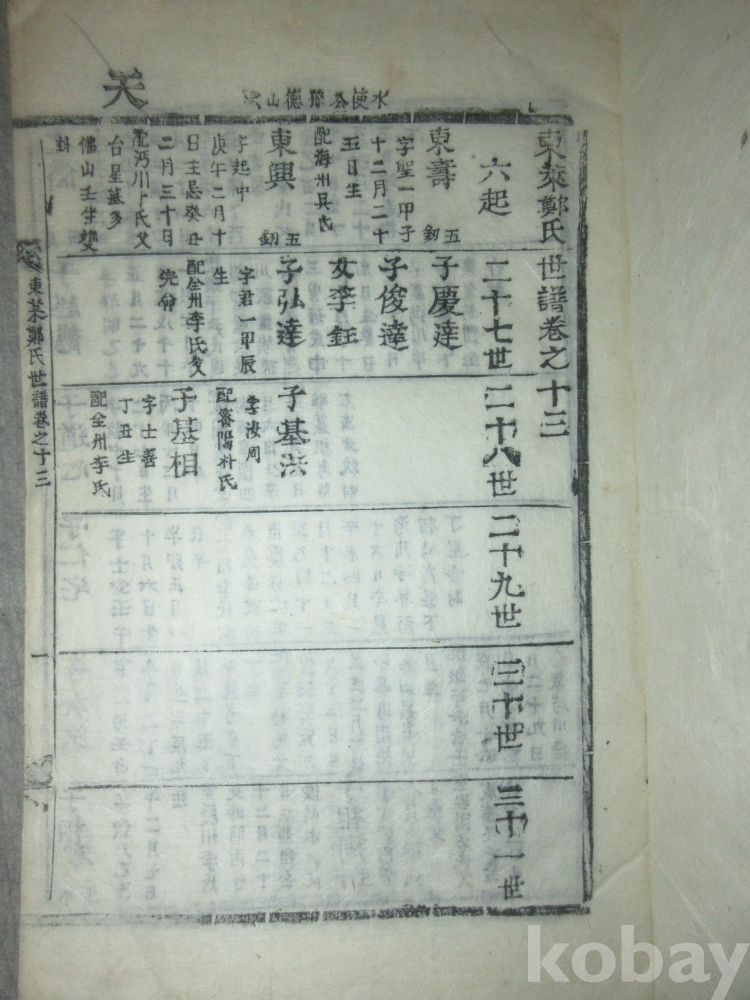 天
水使公豫德山
東萊鄭氏世譜卷之十三
六起
二十七世
二十八世
二十九世
三十世
三十一世
東壽
五
字聖一甲子
十二月二十
五日生
配海州吳氏
東興
五
字起中
庚午二月十
日生忌癸丑
二月三十日
配沔川卜氏父
台星墓多
佛山壬坐雙
子慶達
子俊達
女李鈺
子弘達
字君一甲辰
生
配全州李氏父
子基洪
字汝周
配密陽朴氏
子基相
字士善
丁丑生
配全州李氏
東萊鄭氏世譜卷之十三
kobay